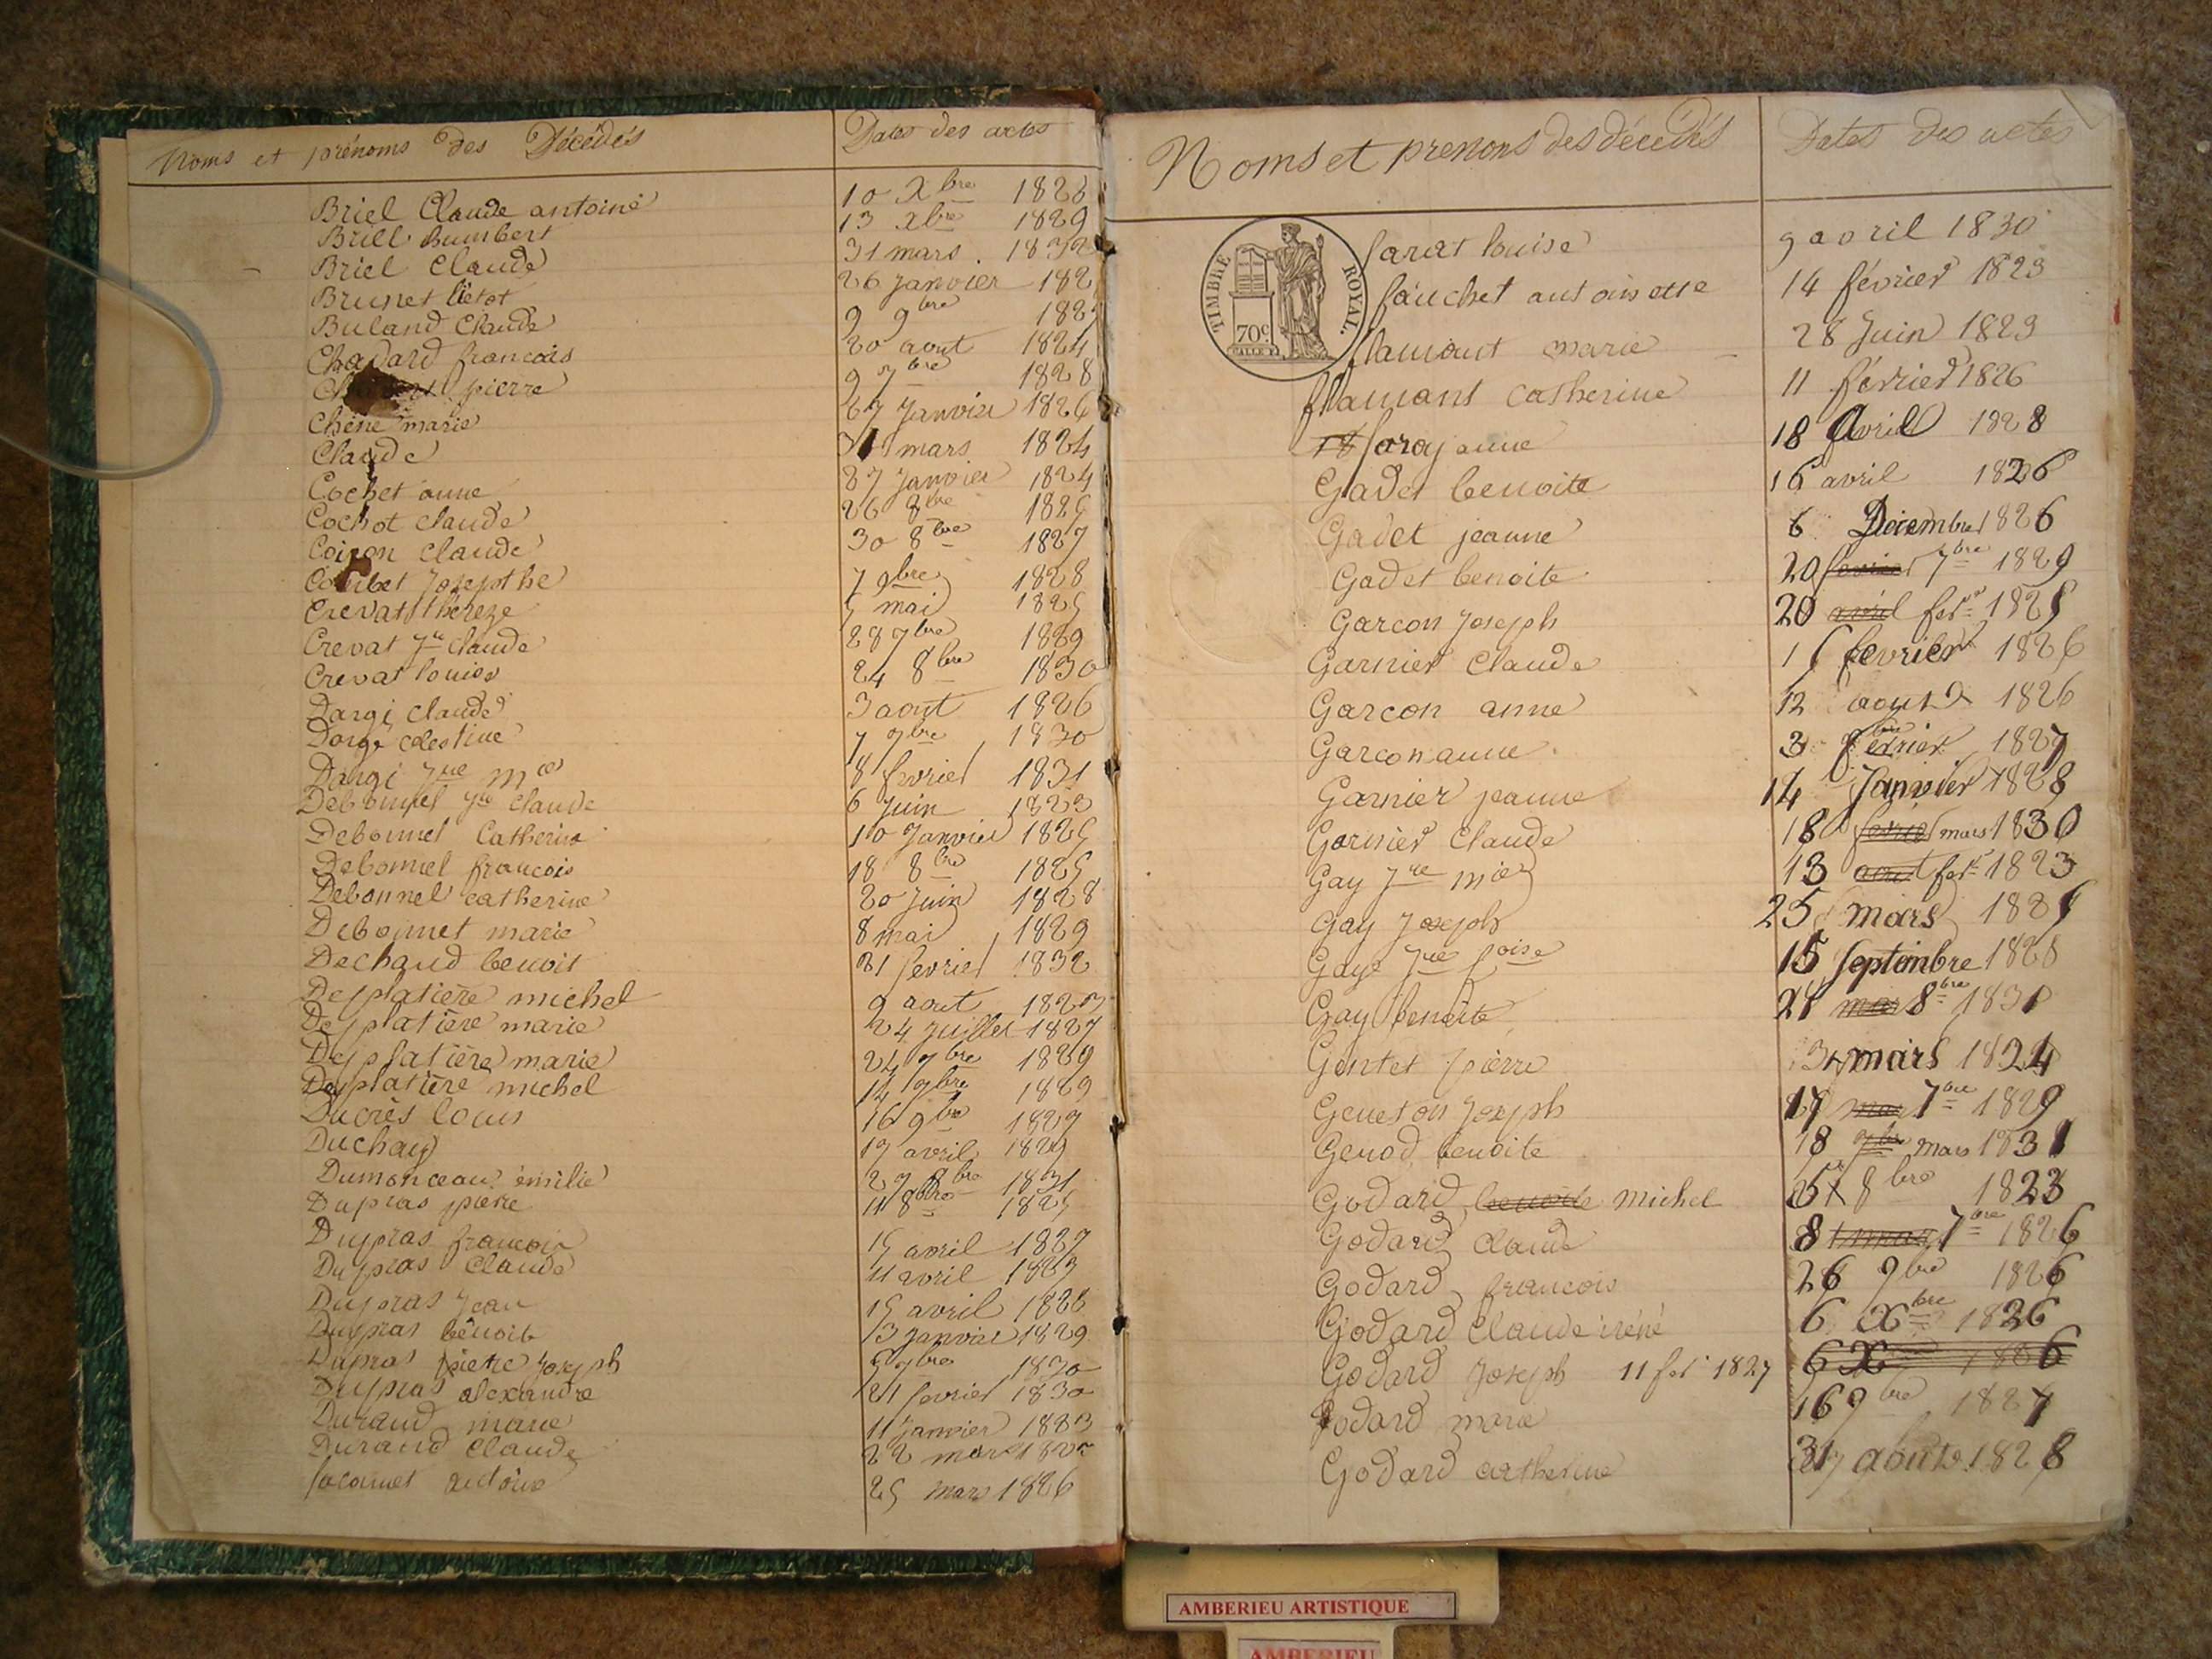 Noms et prénoms des Décédés Dates des actes
Briel Claude antoine 10 Xbre 1828
Brill Humbert 13 xbre 1829
Briel Claude 31 mars 1832
Brunet 26 Janvier 182
Buland Claude 9 9bre 182
Chadard francois 20 aout 1824
pierre 9 7bre 1828
Chêne marie 27 Janvier 1826
Claude mars 1824
Cochet anne 27 Janvier 1824
Cochot claude 26 8bre 1825
Coiron Claude 30 8bre 1827
Combet Josepthe 7 9bre 1828
Crevat thereze 5 mai 1825
Crevat Jne Claude 28 7bre 1829
Crevat louise 24 8bre 1830
Dargi Claude 3 aout 1826
Dorge celestine 7 9bre 1830
Dargi Jne mie 8 fevrier 1831
Debonnel Jne Claude 6 Juin 1823
Debonnel Catherine 10 Janvier 1825
Debonnel francois 18 8bre 1825
Debonnel catherine 20 Juin 1828
Debonnet marie 8 mai 1829
Dechaud benoit 21 fevrier 1832
Desplatière michel 9 aout 1823
Desplatière marie 24 Juillet 1827
Desplatière marie 24 9bre 1829
Desplatière michel 14 9bre 1829
Ducrès louis 16 9bre 1829
Duchay 17 avril 1829
Dumonceau émilie 27 8bre 1831
Dupras pierre 11 8bre 1825
Dupras francois 15 avril 1827
Dupras Claude 11 avril 1823
Dupras Jean 15 avril 1828
Dupras benoite 13 Janvier 1829
Dupras pierre Joseph 5 9bre 1830
Dupras alexandre 21 fevrier 1830
Durand marie 11 Janvier 1823
Durand Claude 22 mars
antoine 25 mars 1826
Noms et prenoms des décédés Dates des actes
TIMBRE ROYAL.
70c.
farat louise 9 avril 1830
fauchet antoinette 14 février 1823
flamant marie 28 Juin 1823
flamant catherine 11 février 1826
18 foray anne 18 Avril 1828
Gadet benoite 16 avril 1826
Gadet jeanne 6 Décembre 1826
Gadet benoite 20 fevrier 7bre 1829
Garcon Joseph 20 avril fer 1825
Garnier Claude 15 fevrier 1826
Garcon anne 12 aout 1826
Garcon anne 3 1827
Garnier jeanne 14 Janvier 1828
Garnier Claude 18 fevrier mars 1830
Gay Jne mie 13 avril fer 1823
Gay Joseph 25 mars 1825
Gaye Jne foise 15 Septembre 1828
Gay benoite 21 mars 8bre 1831
Gentet pierre mars 1824
Geneton Joseph 17 mars 7bre 1829
Genod benoite 18 9bre mars 1831
Godard benoite michel 8bre 1823
Godard claude 8 7bre 1826
Godard francois 26 9bre 1826
Godard Claude iréné 6 Xbre 1826
Godard Joseph 11 fer 1827 6 X 1826
Godard marie 16 9bre 1827
Godard catherine 31 aout 1828
AMBERIEU ARTISTIQUE
AMBERIEU